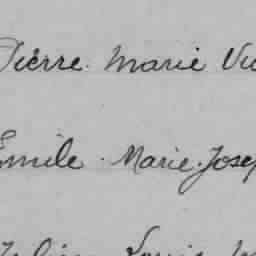 Pierre. Marie Vi
Emile. Marie. Josep
Louis